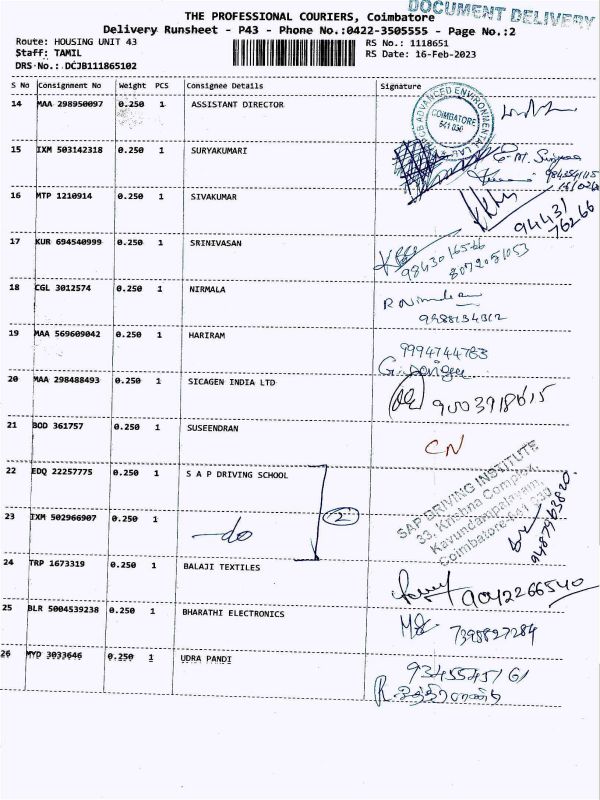 DOCUMENT DELIVERY
THE PROFESSIONAL COURIERS, Coimbatore
Delivery Runsheet - P43 - Phone No.:0422-3505555 - Page No.:2
Route: HOUSING UNIT 43 RS No.: 1118651
Staff: TAMIL RS Date: 16-Feb-2023
DRS No.: DCJB111865102
S No Consignment No Weight PCS Consignee Details Signature
14 MAA 298950097 0.250 1 ASSISTANT DIRECTOR
COIMBATORE
641 030
15 IXM 503142318 0.250 1 SURYAKUMARI
16 MTP 1210914 0.250 1 SIVAKUMAR
94431
76266
17 KUR 694540999 0.250 1 SRINIVASAN
9843016566
8072051053
18 CGL 3012574 0.250 1 NIRMALA
R Nirmala
19 MAA 569609042 0.250 1 HARIRAM
9994744763
20 MAA 298488493 0.250 1 SICAGEN INDIA LTD
9003918615
21 BOD 361757 0.250 1 SUSEENDRAN
CN
22 EDQ 22257775 0.250 1 S A P DRIVING SCHOOL
SAP DRIVING INSTITUTE
33, Krishna Complex,
Kavundampalayam,
Coimbatore-641 030
23 IXM 502966907 0.250 1 do 2
9487963820
24 TRP 1673319 0.250 1 BALAJI TEXTILES
9042266540
25 BLR 5004539238 0.250 1 BHARATHI ELECTRONICS
7395827284
26 MYD 3033646 0.250 1 UDRA PANDI
9345545161